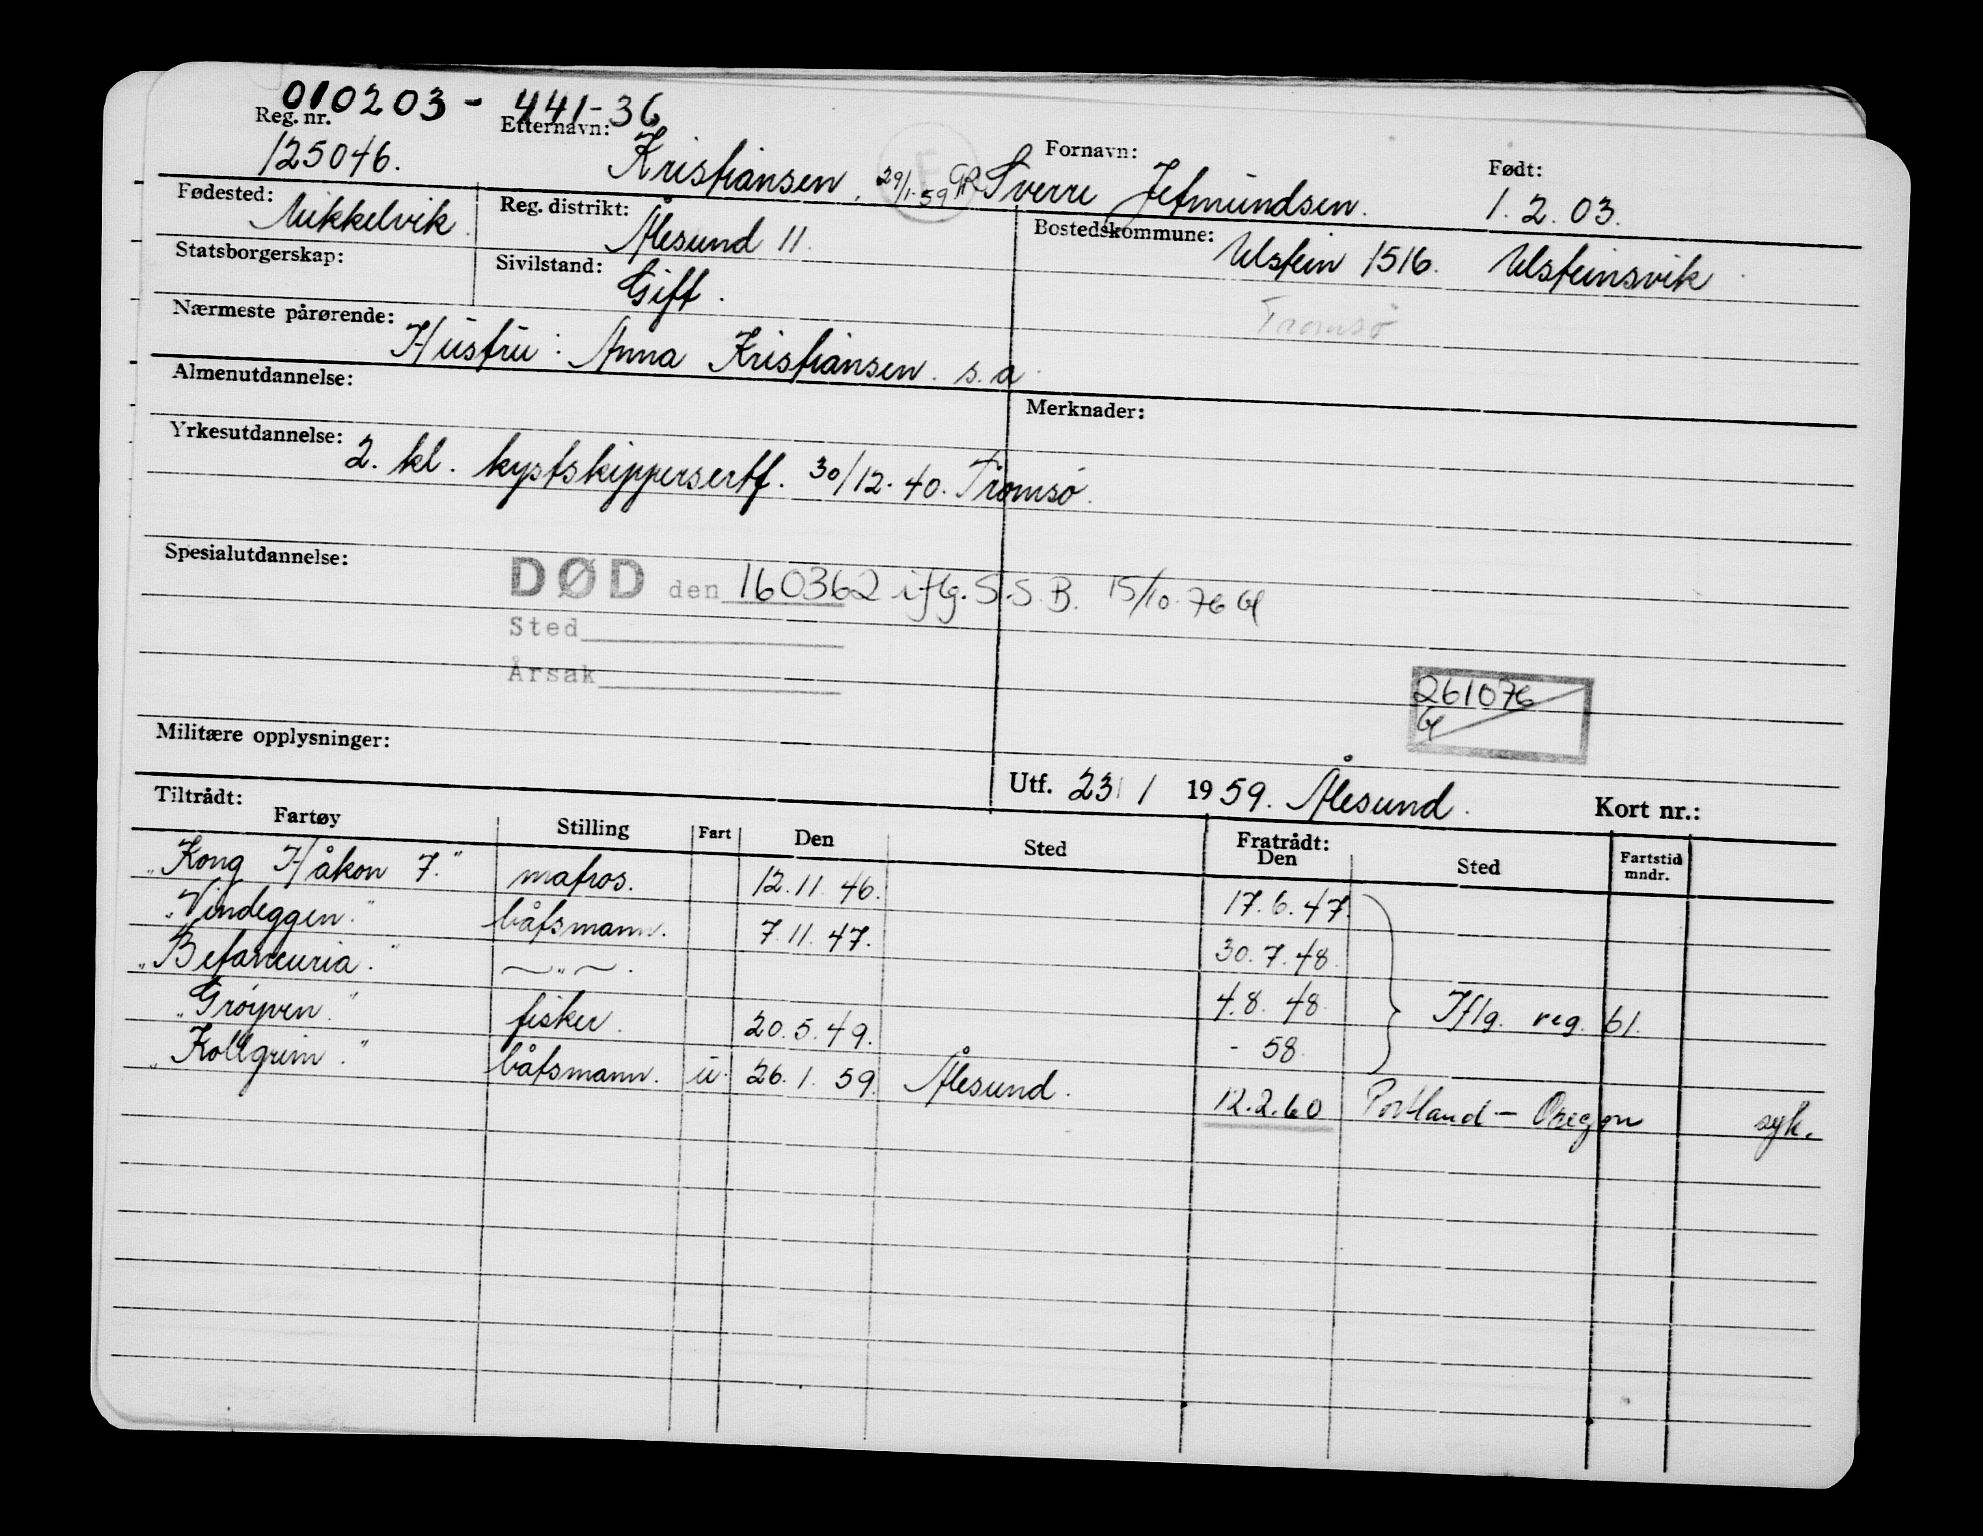 010203 - 441-36
Reg. nr. Etternavn: Fornavn: Født:
125046. Kristiansen, 29/1-59 Sverre Jetmundsen. 1. 2. 03.
Fødested: Mikkelvik. Reg. distrikt: Ålesund 11. Bostedskommune: Ulstein 1516. Ulsteinsvik
Statsborgerskap: Sivilstand: Gift.
Tromsø
Nærmeste pårørende: Hustru: Anna Kristiansen. s. a.
Almenutdannelse: Merknader:
Yrkesutdannelse: 2. kl. kystskippersertf. 30/12-40. Tromsø.
Spesialutdannelse:
DØD den 160362 iflg. S.S.B. 15/10-76
Sted
Årsak
261076
Militære opplysninger:
Utf. 23/1 1959. Ålesund. Kort nr.:
Tiltrådt: Fratrådt:
Fartøy Stilling Fart Den Sted Den Sted Fartstid mndr.
"Kong Håkon 7." matros. 12. 11. 46. 17. 6. 47.
"Vindeggen." båtsmann. 7. 11. 47. 30. 7. 48.
— " — . 4. 8. 48. Iflg. reg. bl.
fisker. 20. 5. 49. - 58.
"Kollgrim." båtsmann. u. 26. 1. 59. Ålesund. 12. 2. 60 Portland - Oregon syk.